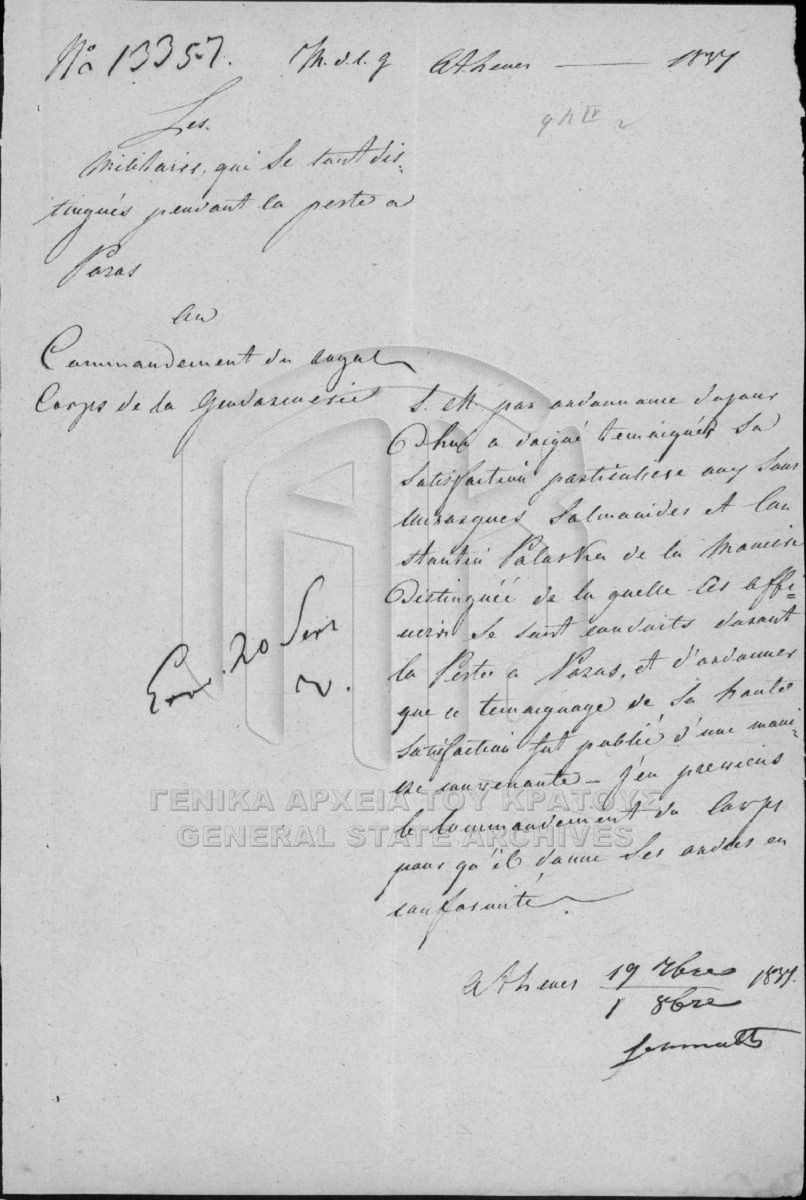 No 13357. M. d. l. g Athenes — 1837
Les
militaires, qui se sont dis-
tingués pendant la peste a
Poros
Au
Commandement du royal
Corps de la Gendarmerie
S. M. par ordonnance d'aujour
d'hui a daigné temoigner sa
satisfaction particuliere aux sous
Salmanides et Con
stantin de la maniere
distinguée de la quelle ces offi=
ciers se sont conduits durant
la Peste a Poros, et d'ordonner
que ce temoignage de sa haute
satisfaction fut publié d'une mani-
ere convenante – j'en previens
le Commandement du Corps
pour qu'il donne ses ordres en
conformité.
20
ΓΕΝΙΚΑ ΑΡΧΕΙΑ ΤΟΥ ΚΡΑΤΟΥΣ
GENERAL STATE ARCHIVES
Athenes 19 7bre 1837.
1 8bre